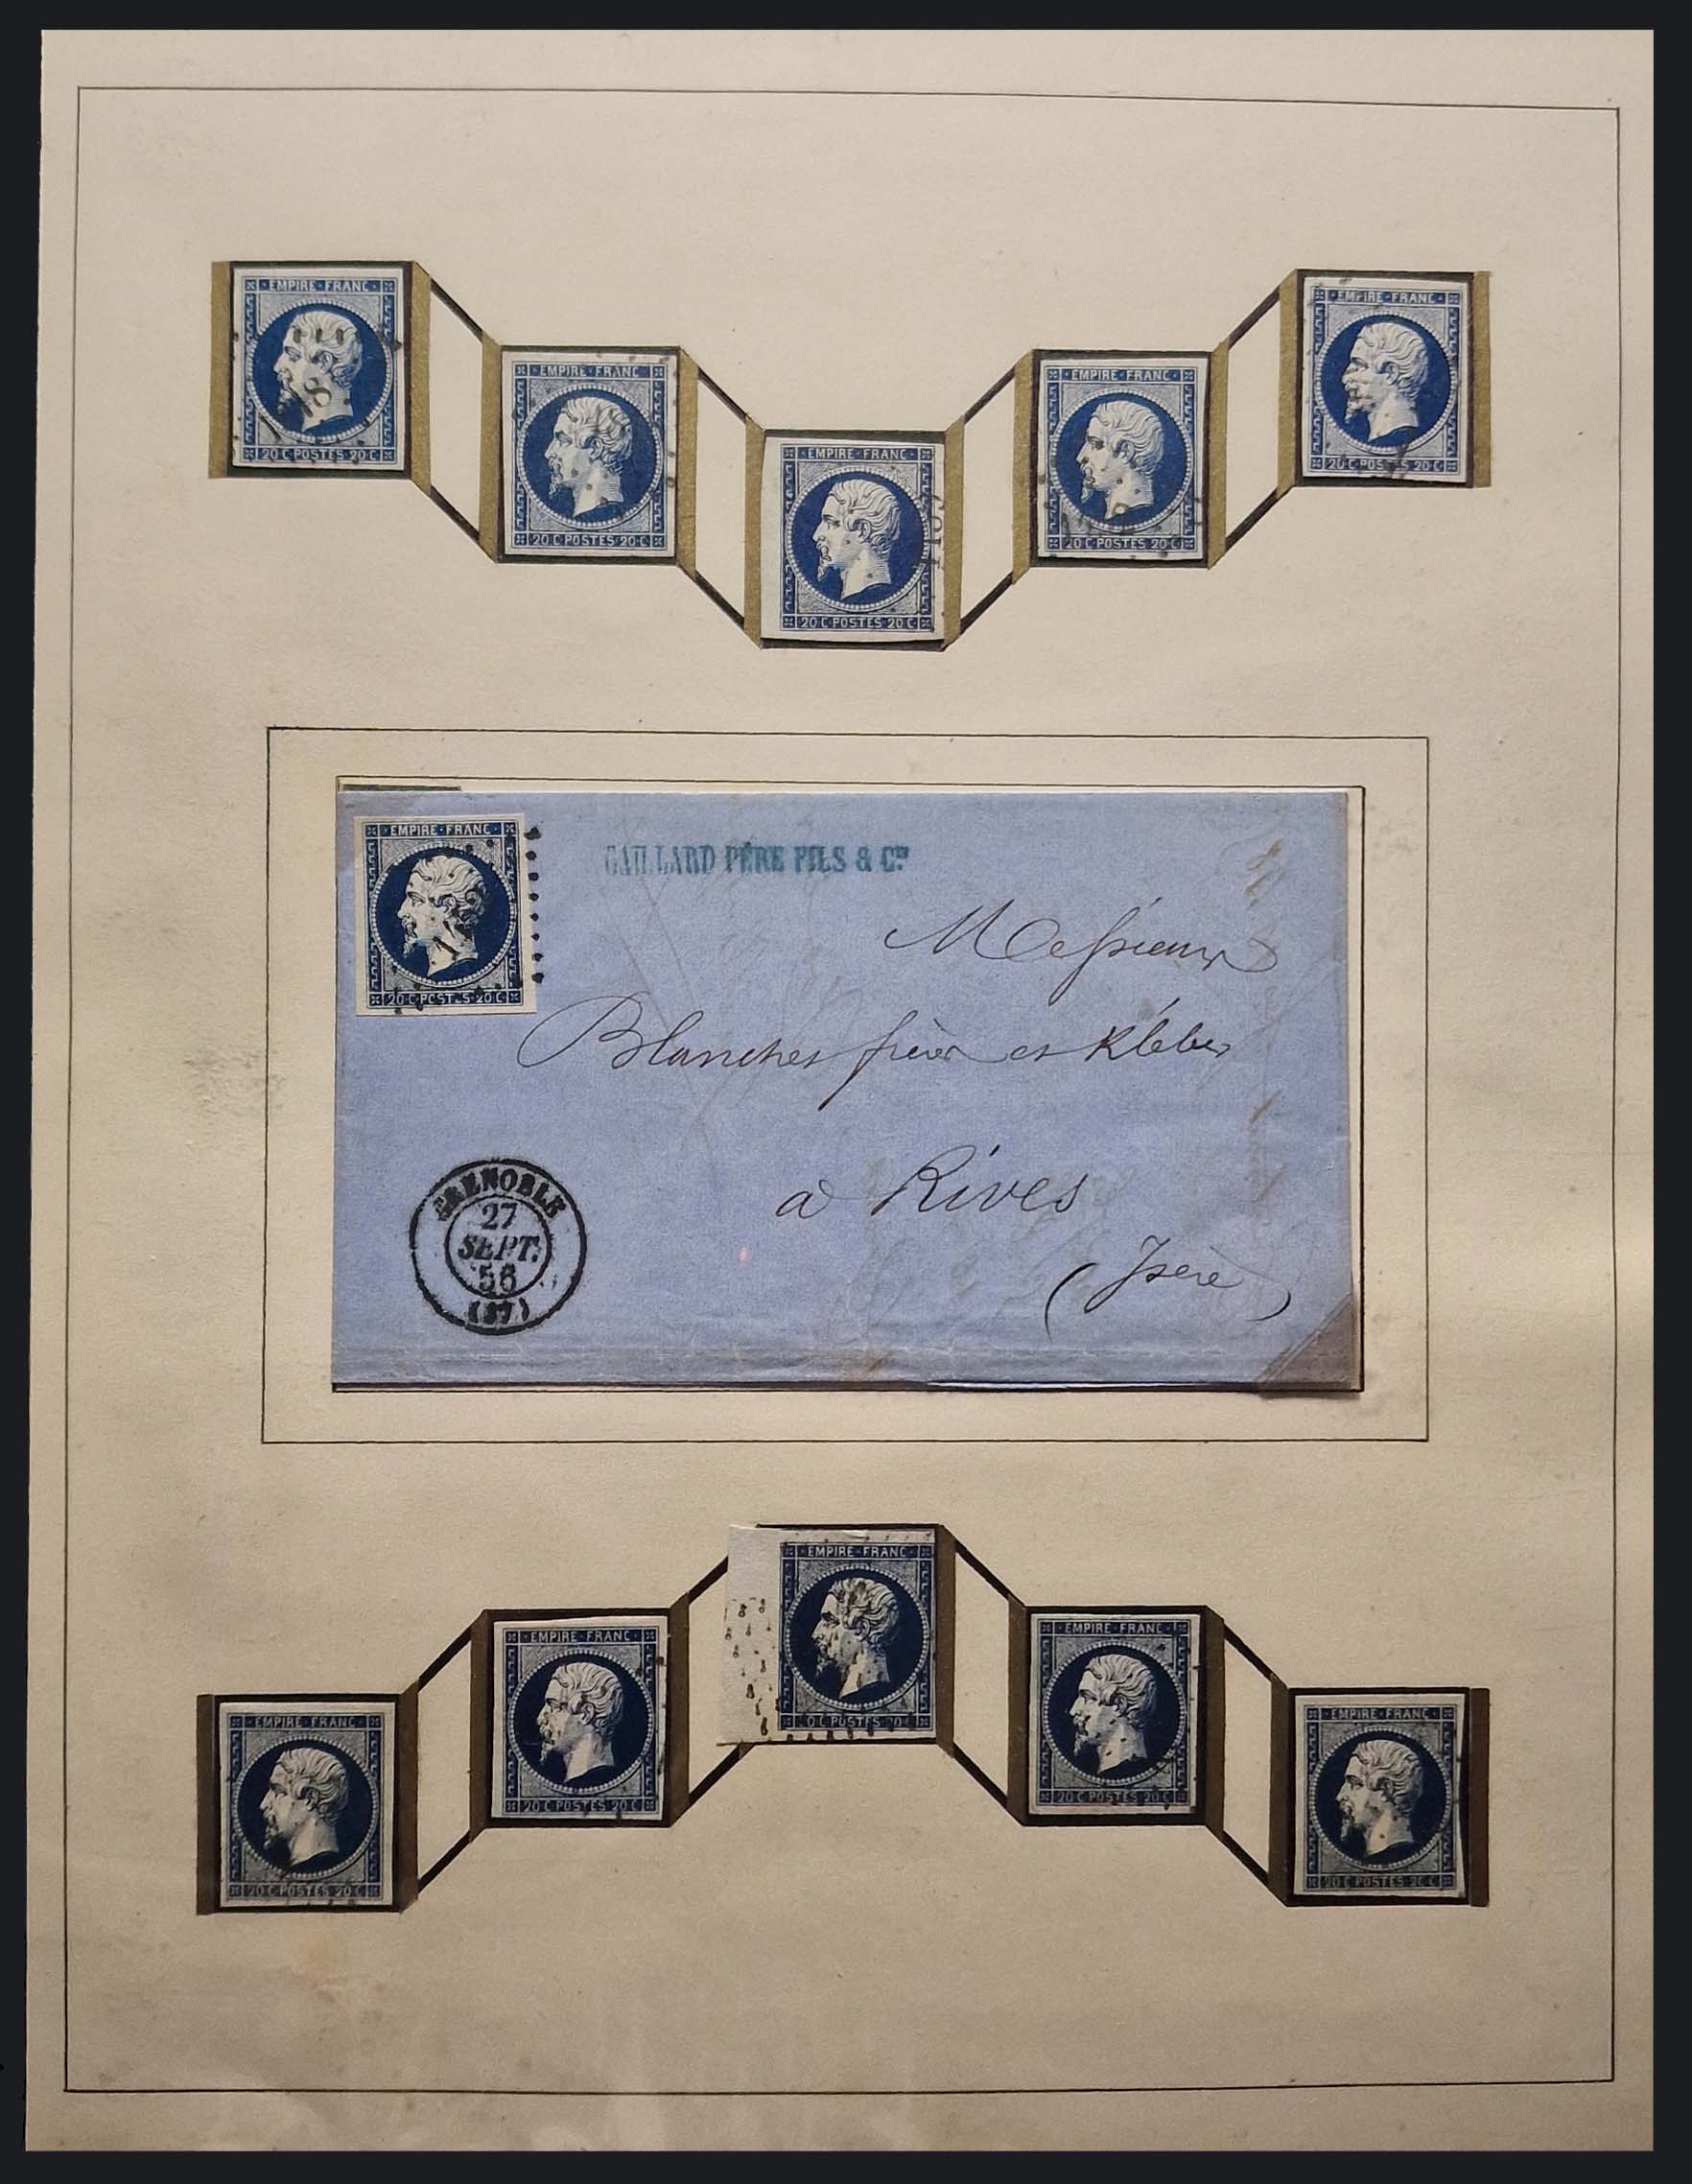 EMPIRE·FRANC·
20 C·POSTES·20 C·
EMPIRE·FRANC
20 C·POSTES·20·C·
EMPIRE·FRANC·
20 C·POSTES·20 C·
EMPIRE·FRANC·
20 C·POSTES 20 C·
EMPIRE·FRANC·
20 C·POSTES 20 C·
EMPIRE·FRANC·
20·C·POSTES·20 C
GAILLARD PÈRE FILS & Cie
Messieurs
Blanchet frères et Kléber
a Rives
(Isère)
GRENOBLE
27
SEPT.
56
(37)
EMPIRE·FRANC·
20 C·POSTES 20 C·
EMPIRE·FRANC·
20 C·POSTES 20 C·
EMPIRE·FRANC·
0 C POSTES 20
EMPIRE·FRANC·
20 C·POSTES 20 C
EMPIRE·FRANC·
20 C·POSTES 20 C